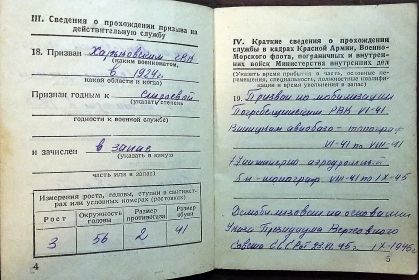 III. Сведения о прохождении призыва на
действительную службу
18. Призван Харьковским РВК
(каким военкоматом,
в 1924 г.
какая область и когда)
Признан годным к строевой
(указать степень
годности к военной службе)
и зачислен в запас
(указать в какую
часть или в запас)
Измерения роста, головы, ступни в сантимет-
рах или условных номерах (ростовках)
Рост
Окружность головы
Размер противогаза
Размер обуви
3 56 2 41
4
IV. Краткие сведения о прохождении
службы в кадрах Красной Армии, Военно-
Морского флота, пограничных и внутрен-
них войск Министерства внутренних дел
(Указать время прибытия в часть, основные пере-
мещения, специальность, должностные квалифи-
кации и время увольнения в запас)
19. Призван по мобилизации
Погребищенским РВК VI-41
авиабаза-
VI-41 по VIII-41
аэродромный
б-н- VIII-41 по IX-45
Демобилизован на основании
Указа Президиума Верховного
Совета СССР IX-1945 г.
5